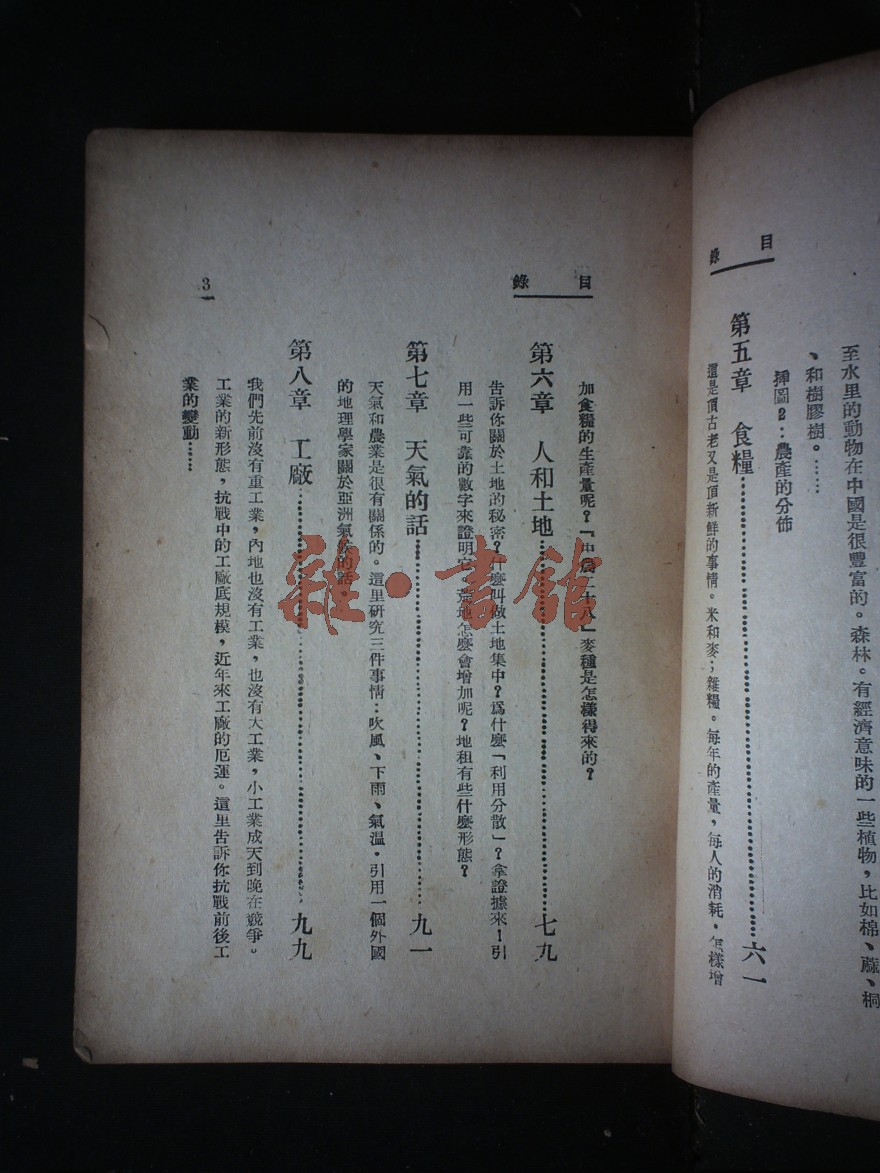 目錄
至水里的動物在中國是很豐富的。森林。有經濟意味的一些植物，比如棉、蔴、桐
、和樹膠樹。……
挿圖2：農產的分佈
第五章　食糧……六一
這是頂古老又是頂新鮮的事情。米和麥；雜糧。每年的產量，每人的消耗，怎樣增
目錄
3
加食糧的生產量呢？「中農二十八」麥種是怎樣得來的？
第六章　人和土地……七九
告訴你關於土地的秘密？什麼叫做土地集中？爲什麼「利用分散」？拿證據來！引
用一些可靠的數字來證明它。荒地怎麼會增加呢？地租有些什麼形態？
第七章　天氣的話……九一
天氣和農業是很有關係的。這里研究三件事情：吹風、下雨、氣溫。引用一個外國
的地理學家關於亞洲氣候的話。
第八章　工廠……九九
我們先前沒有重工業，內地也沒有工業，也沒有大工業，小工業成天到晚在競爭。
工業的新形態，抗戰中的工廠底規模，近年來工廠的厄運。這里告訴你抗戰前後工
業的變動……
雜·書館